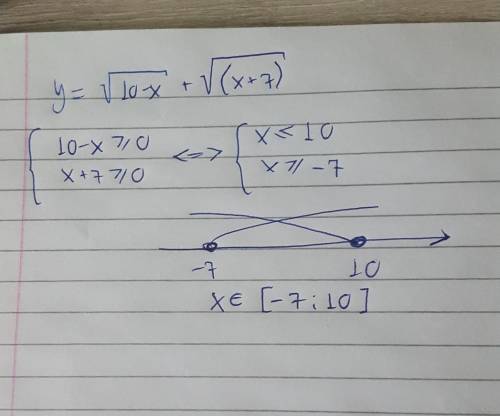 y = √10-x + √(x+7)
{ 10-x ⩾ 0 <=> { x ≤ 10
x+7 ⩾ 0 x ⩾ -7
-7 10
x ∈ [-7 ; 10]